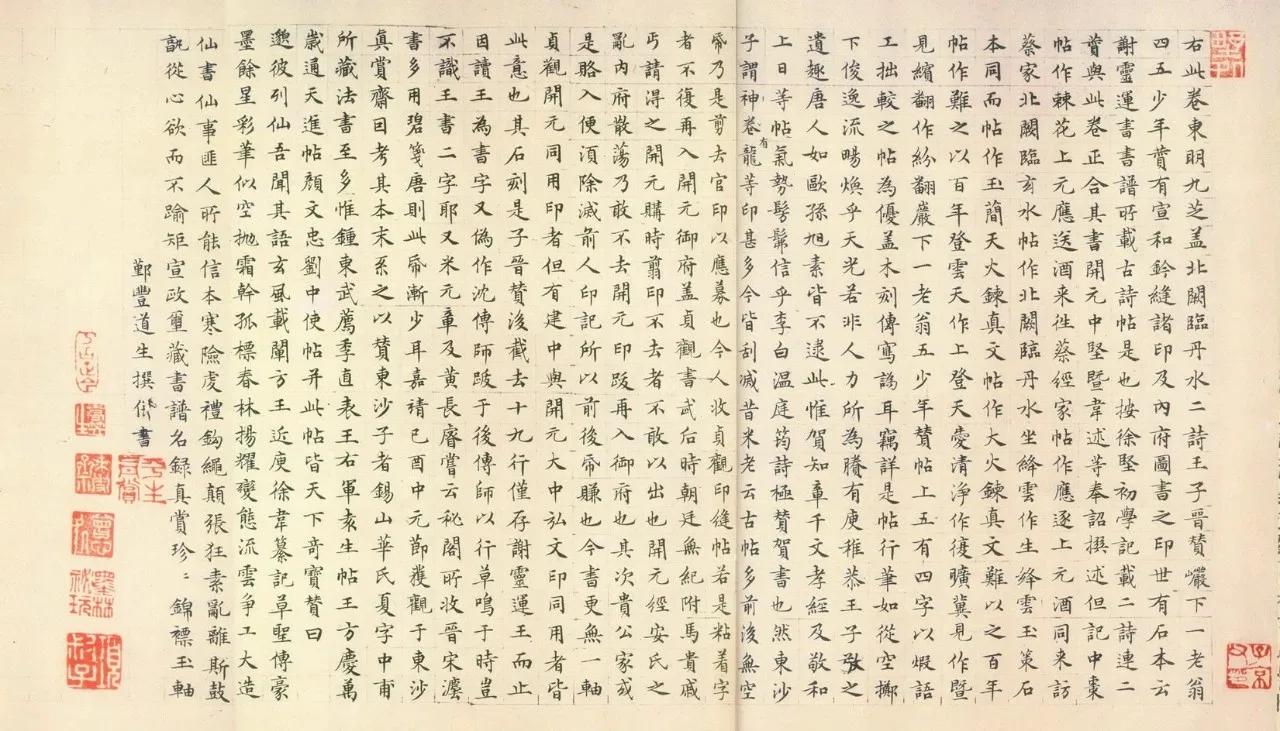 右此卷東明九芝盖北闕臨丹水二詩王子晉賛巗下一老翁
四五少年賛有宣和鈐縫諸印及內府圖書之印世有石本云
謝靈運書書譜所載古詩帖是也按徐堅初學記載二詩連二
賛與此卷正合其書開元中堅暨韋述等奉詔撰述但記中棗
帖作棘花上元應送酒来徃蔡經家帖作應逐上元酒同来訪
蔡家北闕臨玄水帖作北闕臨丹水坐絳雲作生絳雲玉策石
本同而帖作玉簡天火鍊真文帖作大火鍊真文難以之百年
帖作難之以百年登雲天作上登天愛清淨作復曠冀見作暨
見繽翻作紛翻巖下一老翁五少年賛帖上五有四字以煆語
工拙較之帖為優盖木刻傳寫譌耳竊詳是帖行筆如從空擲
下俊逸流暢煥乎天光若非人力所為騰有庾稚恭王子敬之
遺趣唐人如歐孫旭素皆不逮此惟賀知章千文孝經及敬和
上日等帖氣勢髣髴信乎李白温庭筠詩極賛賀書也然東沙
子謂神卷有龍等印甚多今皆刮滅昔米老云古帖多前後無空
帋乃是剪去官印以應募也今人收貞觀印縫帖若是粘着字
者不復再入開元御府盖貞觀書武后時朝廷無紀附馬貴戚
丐請得之開元購時剪印不去者不敢以出也開元經安氏之
亂內府散蕩乃敢不去開元印跋再入御府也其次貴公家或
是賂入便湏除滅前人印記所以前後帋賺也今書更無一軸
貞觀開元同用印者但有建中與開元大中弘文印同用者皆
此意也其石刻是子晉賛後截去十九行僅存謝靈運王而止
因讀王為書字又偽作沈傳師跋于後傳師以行草鳴于時豈
不識王書二字耶又米元章及黃長睿嘗云秘閣所收晉宋灋
書多用碧箋唐則此帋漸少耳嘉靖己酉中元節獲觀于東沙
真賞齋因考其本末系之以賛東沙子者錫山華氏夏字中甫
所藏法書至多惟鍾東武薦季直表王右軍袁生帖王方慶萬
嵗通天進帖顏文忠劉中使帖并此帖皆天下竒寶賛曰
邈彼列仙吾聞其語玄風載闡方王近庾徐韋纂記草聖傳豪
墨餘星彩筆似空拋霜幹孤標春林揚耀變態流雲争工大造
仙書仙事匪人所能信本寒險虔禮鈎繩顛張狂素亂離斯鼓
孰從心欲而不踰矩宣政璽藏書譜名録真賞珍〻錦褾玉軸
鄞豐道生撰併書